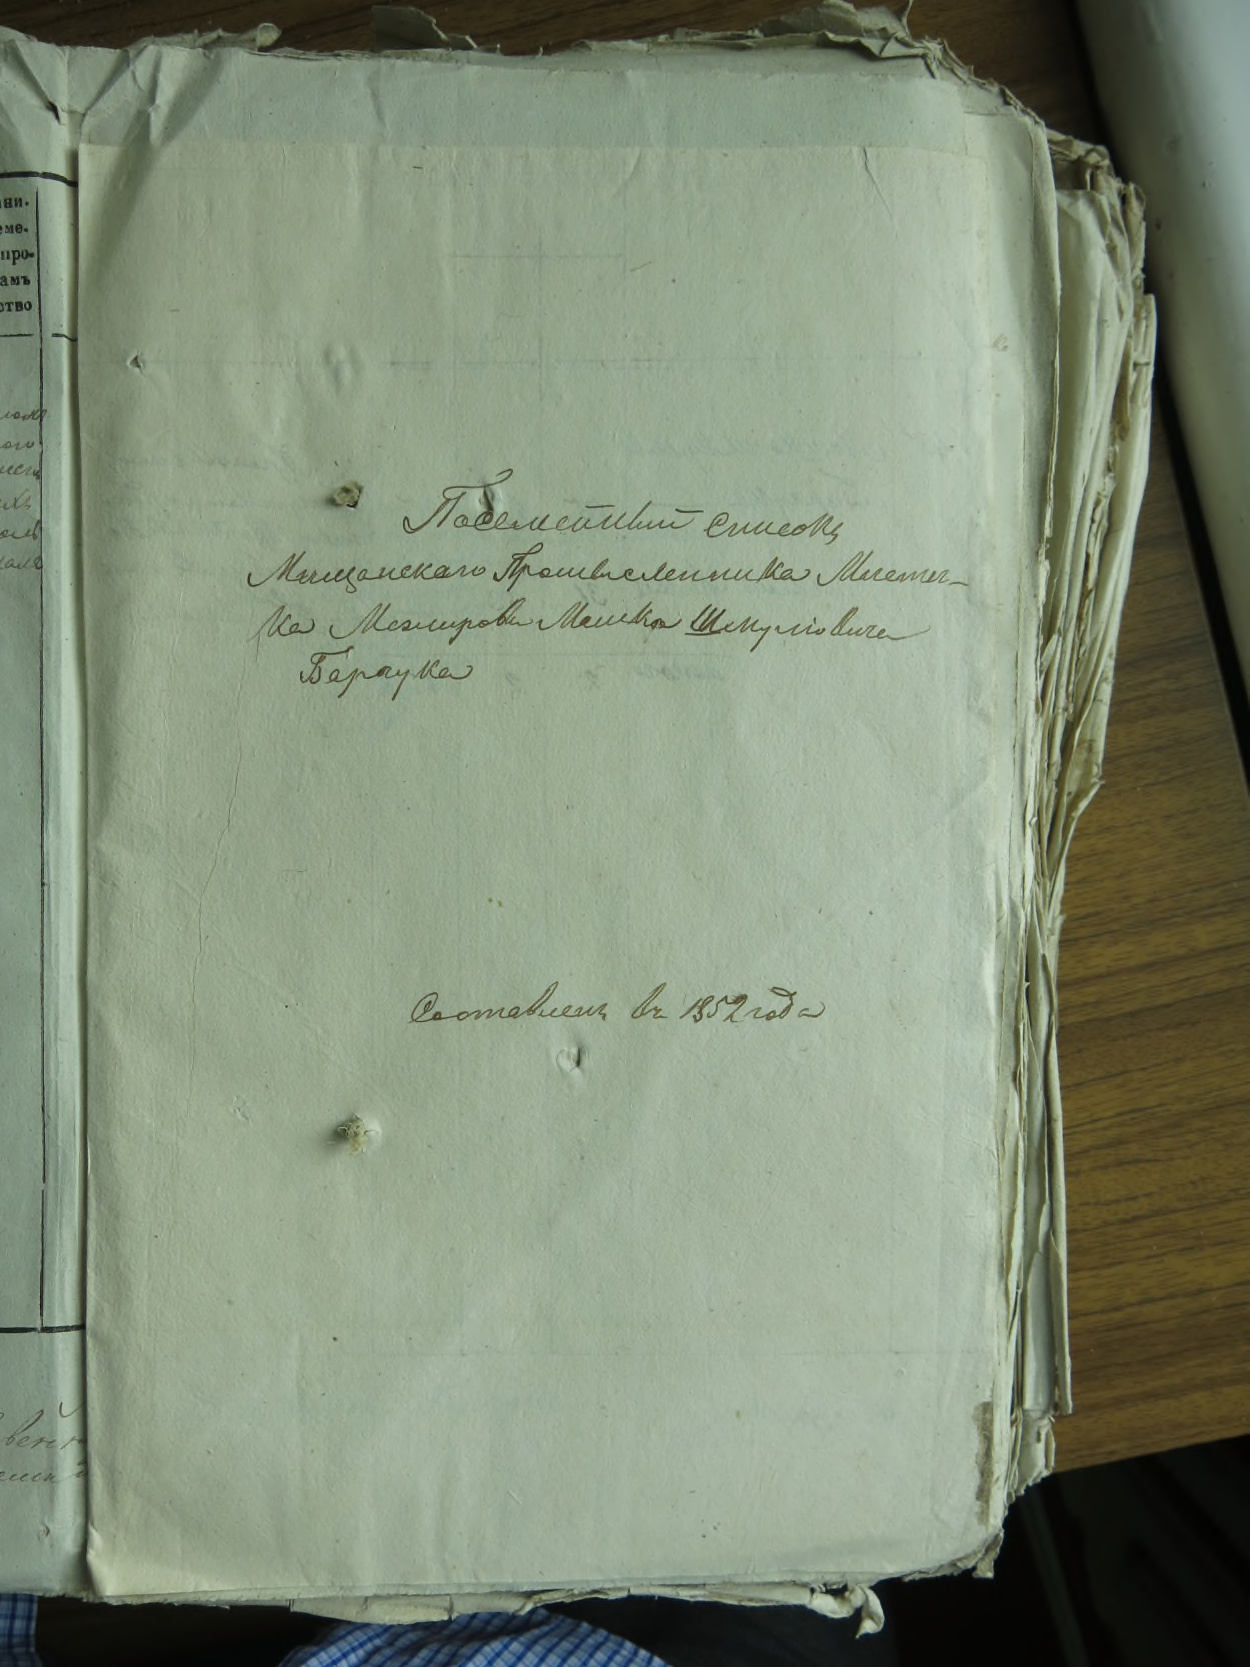 ни.
еме.
про-
амъ
ство
Посемейный списокъ
Мещанскаго Промышленника Мистеч-
ка Межирова Мошка Шмулiовича
Барчука
Составленъ въ 1852 года